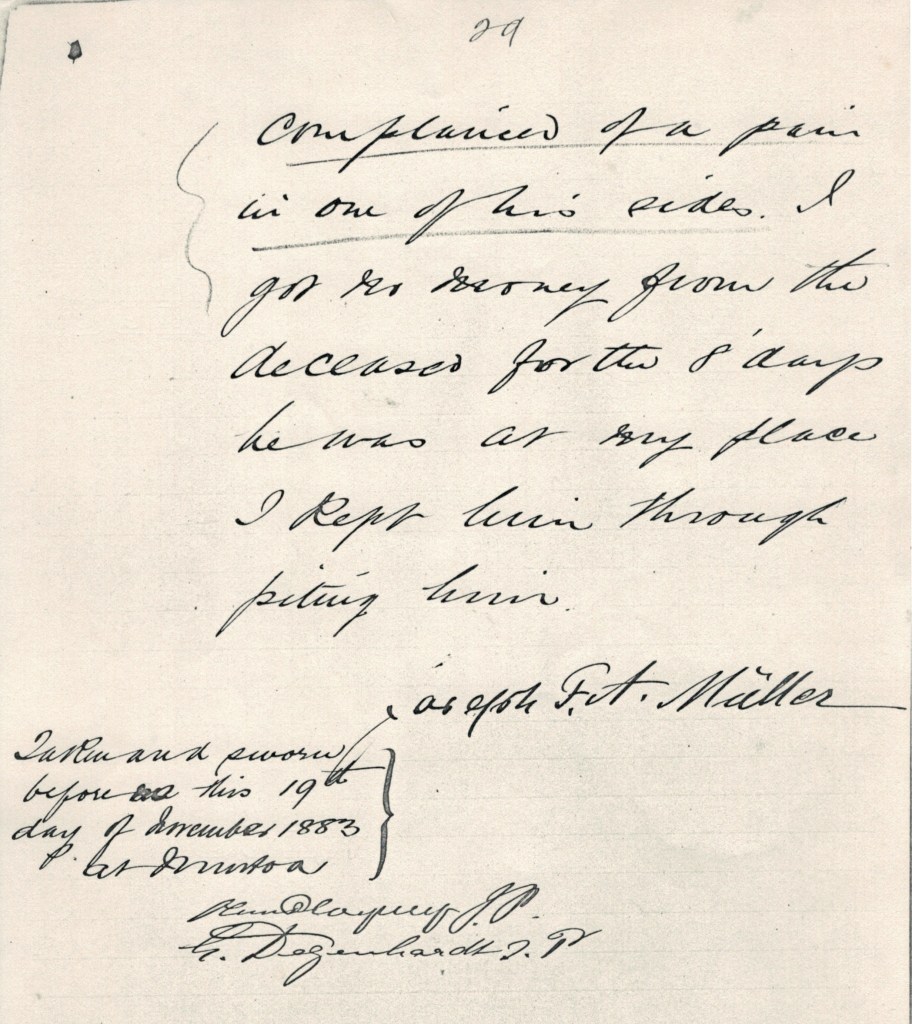 29
complained of a pain
in one of his sides. I
got no money from the
deceased for the 8 days
he was at my place
I kept him through
pitiing him.
Joseph F. A. Müller
Taken and sworn
before this 19th
day of November 1883
at Murtoa
J.P.
G. Degenhardt J.P.